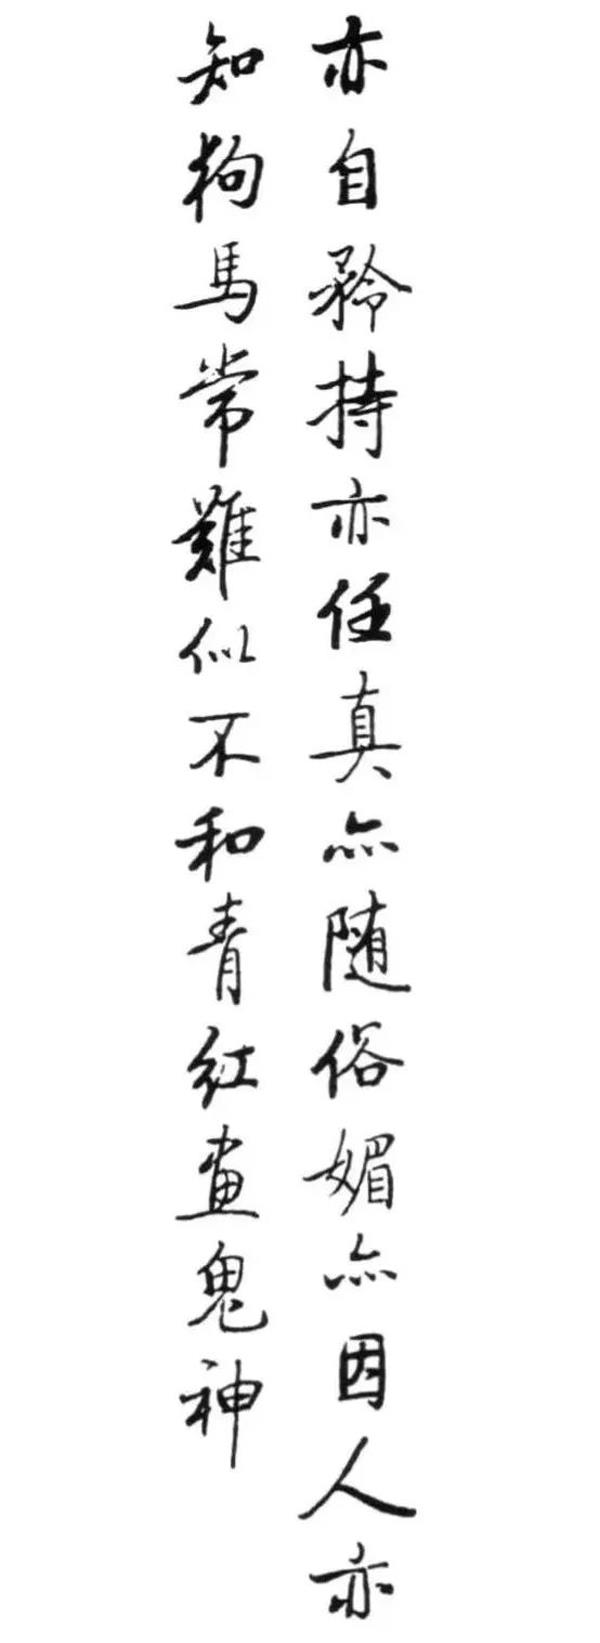 亦自矜持亦任真亦随俗媚亦因人亦
知狗馬常難似不和青紅畫鬼神